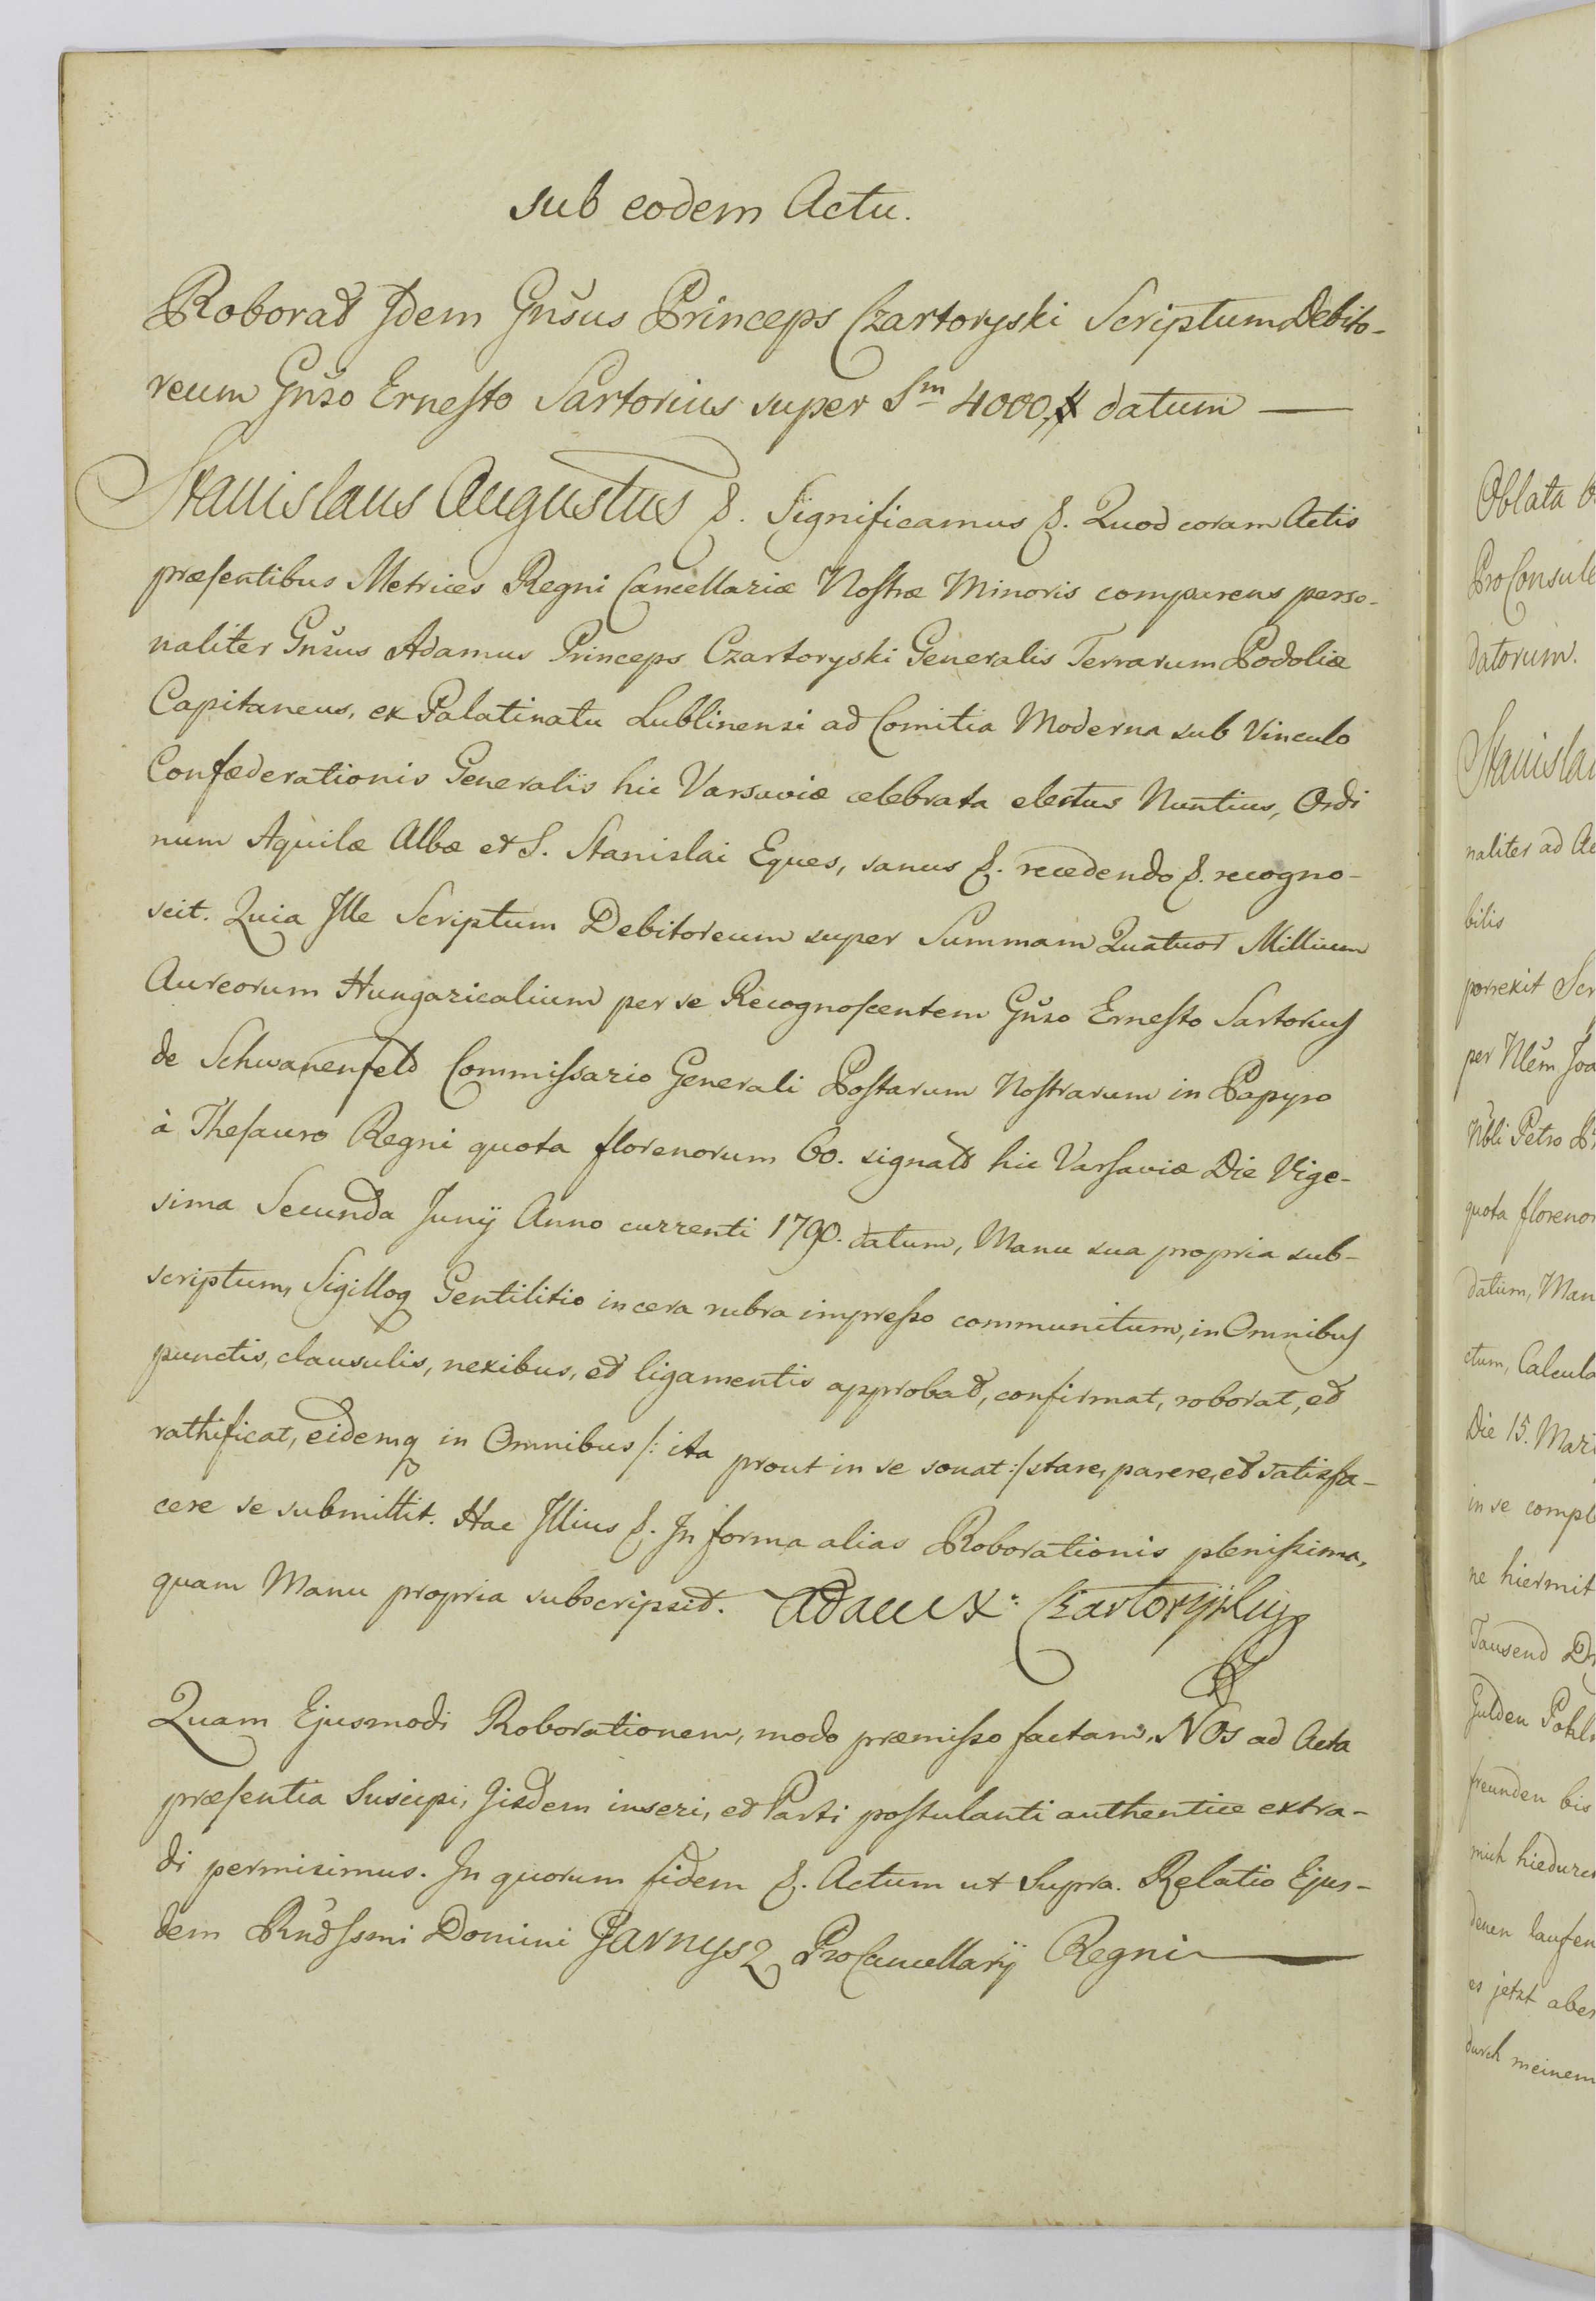 sub eodem Actu.
Roborat Idem Gnsus Princeps Czartoryski Scriptum Debito-
reum Gnso Ernesto Sartorius super Sm 4000 # datum —
Stanislaus Augustus &. Significamus &. Quod coram Actis
præsentibus Metrices Regni Cancellariæ Nostræ Minoris comparens perso-
naliter Gnsus Adamus Princeps Czartoryski Generalis Terrarum Podoliæ
Capitaneus, ex Palatinatu Lublinensi ad Comitia Moderna sub Vinculo
Confæderationis Generalis hic Varsaviæ celebrata electus Nuntius, Ordi
num Aquilæ Albæ et S. Stanislai Eques, sanus &. recedendo &. recogno-
scit. Quia Ille Scriptum Debitoreum super Summam Quatuor Millium
Aureorum Hungaricalium per se Recognoscentem Gnso Ernesto Sartorius
de Schwanenfeld Commissario Generali Postarum Nostrarum in Papyro
à Thesauro Regni quota florenorum 60. signato hic Varsaviæ Die Vige-
sima Secunda Junij Anno currenti 1790. datum, Manu sua propria sub-
scriptum, Sigilloq Gentilitio in cera rubra impresso communitum, in Omnibus
punctis, clausulis, nexibus, et ligamentis approbat, confirmat, roborat, et
rathificat, eidemq in Omnibus /: ita prout in se sonat :/ stare, parere, et satisfa-
cere se submittit. Hac Illius &. In forma alias Roborationis plenissima,
quam Manu propria subscripsit. Adam X: Czartoryski
Quam Ejusmodi Roborationem, modo præmisso factam, NOs ad Acta
præsentia Suscipi, Iisdem inseri, et Parti postulanti authentice extra-
di permisimus. In quorum fidem &. Actum ut Supra. Relatio Ejus-
dem Rndssmi Domini Garnysz ProCancellarij Regni —
Oblata
ProConsule
datorum.
Stanislau
naliter ad Ac
bilis
porrexit Scr
per Nlem Joa
Nbli Petro
quota floreno
datum, Man
ctum, Calcula
Die 15. Mar
in se compl
ne hiermit
Tausend
Gulden Pohl
freunden bis
mich hiedurch
denen laufen
es jetzt aber
durch meinem